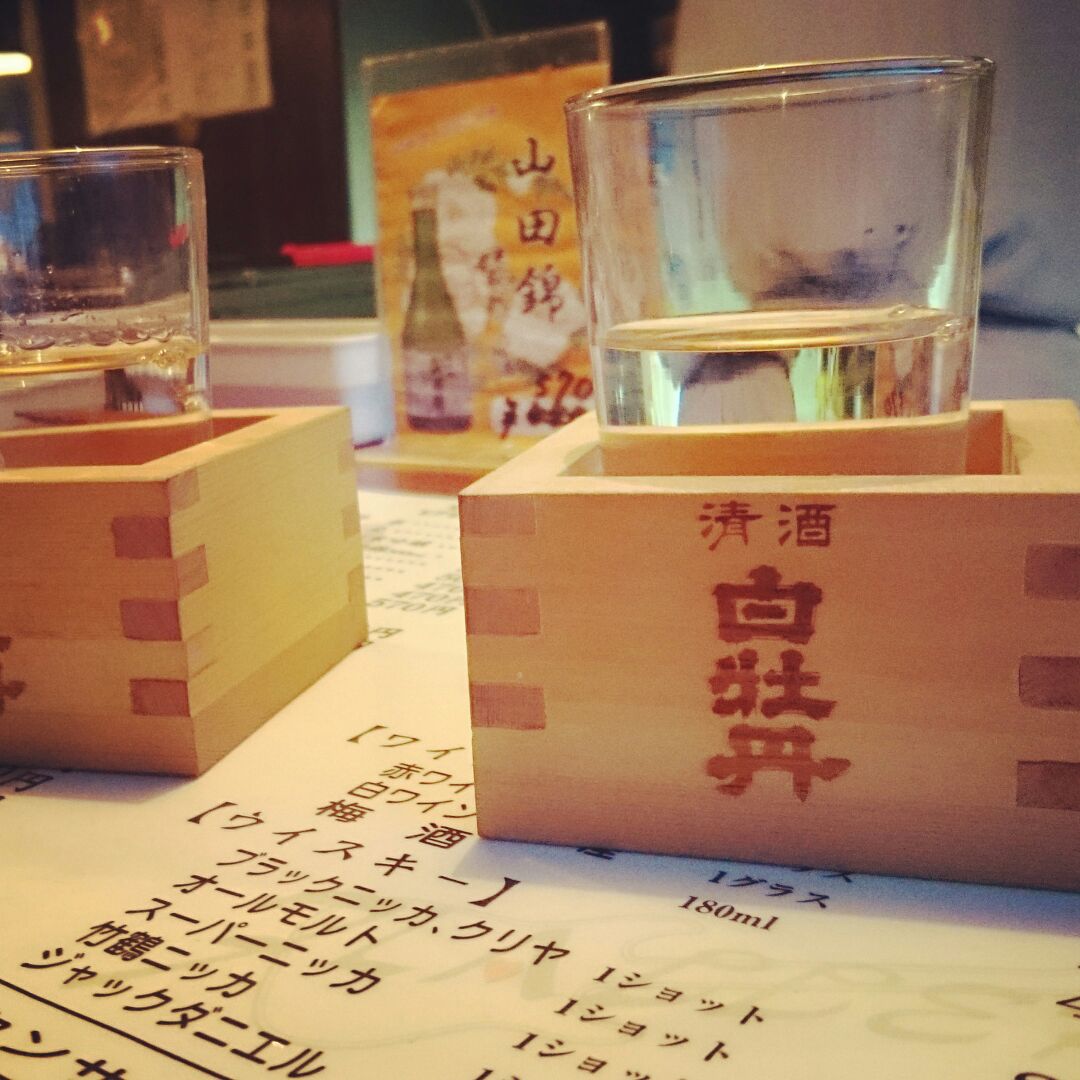 山田錦
570
清酒
白牡丹
470円
570円
【ワイ
赤ワイ
白ワイン
梅酒
1グラス
180ml
【ウイスキー】
ブラックニッカ、クリヤ 1ショット
オールモルト 1ショット
スーパーニッカ 1ショッ
竹鶴ニッカ
ジャックダニエル